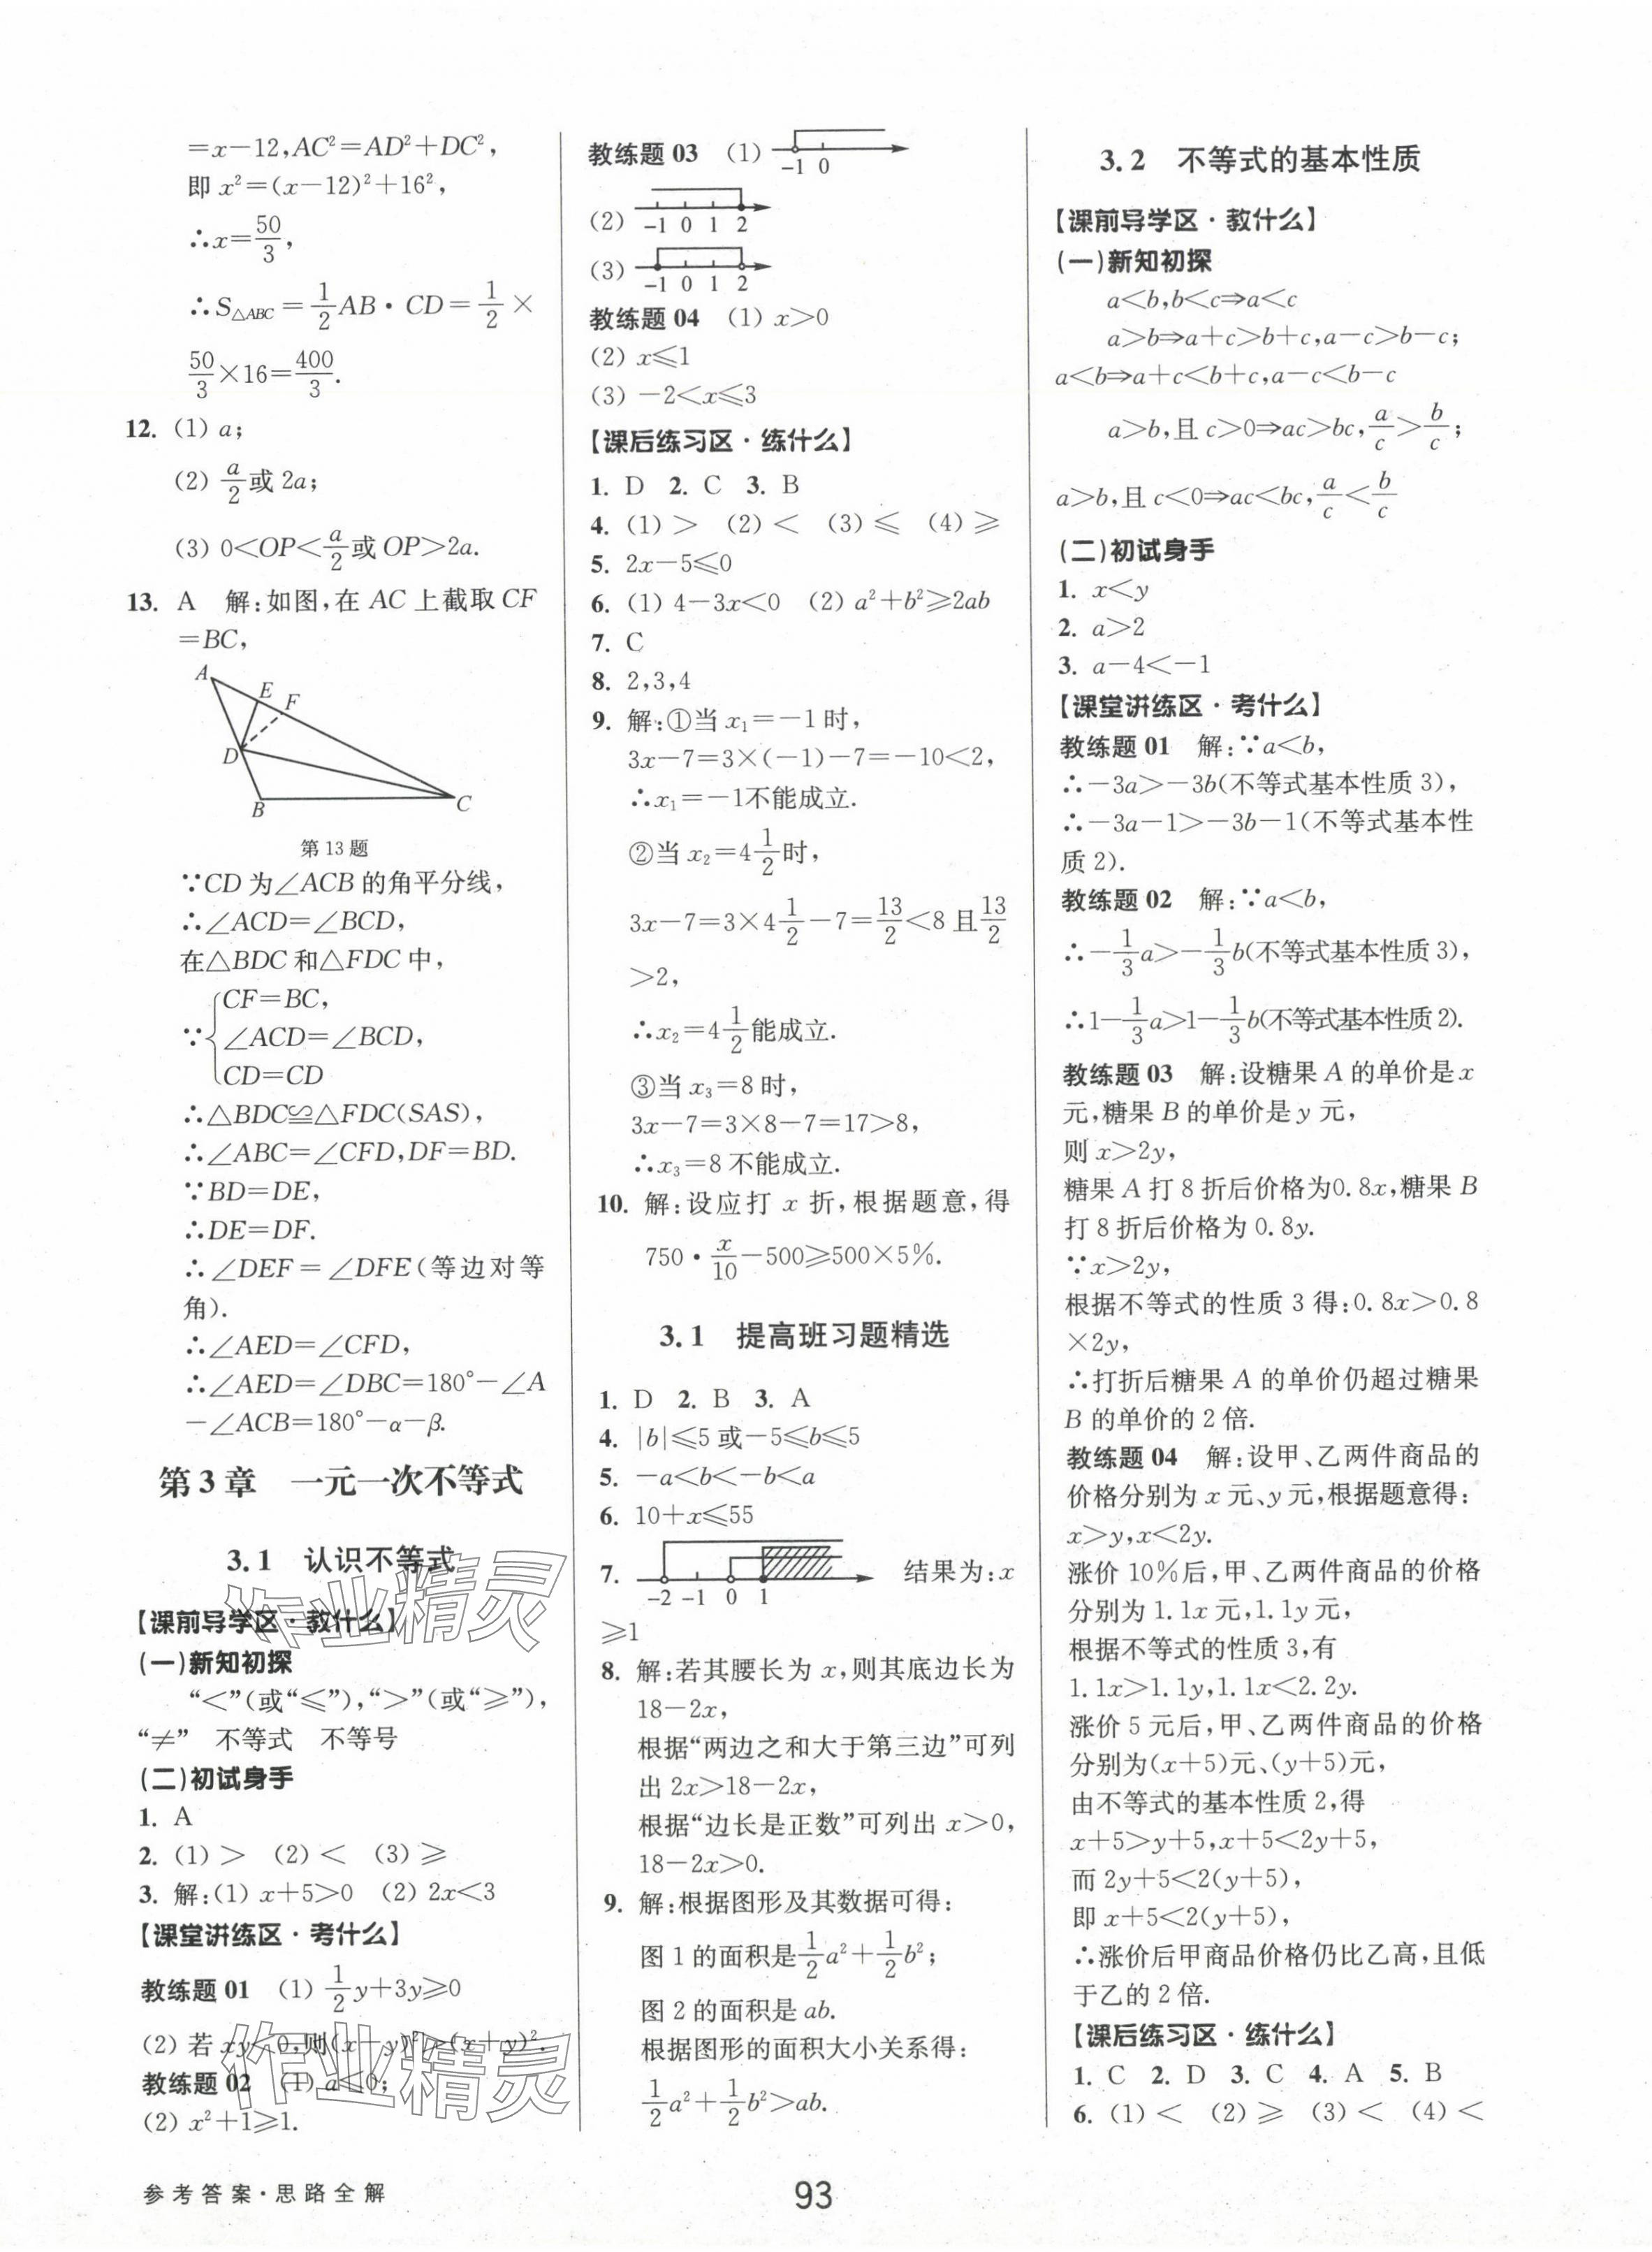 =x-12,AC²=AD²+DC²,
即 x²=(x-12)²+16²,
∴x=50/3,
∴S△ABC=1/2AB·CD=1/2×
50/3×16=400/3.
12. (1) a;
(2) a/2或 2a;
(3) 0<OP<a/2或 OP>2a.
13. A 解:如图,在 AC 上截取 CF
=BC,
A
E
F
D
B
C
第 13 题
∵CD 为∠ACB 的角平分线,
∴∠ACD=∠BCD,
在△BDC 和△FDC 中,
CF=BC,
∵{∠ACD=∠BCD,
CD=CD
∴△BDC≌△FDC(SAS),
∴∠ABC=∠CFD,DF=BD.
∵BD=DE,
∴DE=DF.
∴∠DEF=∠DFE(等边对等
角).
∴∠AED=∠CFD,
∴∠AED=∠DBC=180°-∠A
-∠ACB=180°-α-β.
第 3 章 一元一次不等式
3.1 认识不等式
【课前导学区·教什么】
(一)新知初探
“<”(或“⩽”),“>”(或“⩾”),
“≠” 不等式 不等号
(二)初试身手
1. A
2. (1) > (2) < (3) ⩾
3. 解:(1) x+5>0 (2) 2x<3
【课堂讲练区·考什么】
教练题 01 (1) 1/2y+3y⩾0
(2) 若 xy<0,则(x-y)²>(x+y)².
教练题 02 (1) a⩽0;
(2) x²+1⩾1.
教练题 03 (1) -1 0
(2) -1 0 1 2
(3) -1 0 1 2
教练题 04 (1) x>0
(2) x⩽1
(3) -2<x⩽3
【课后练习区·练什么】
1. D 2. C 3. B
4. (1) > (2) < (3) ⩽ (4) ⩾
5. 2x-5⩽0
6. (1) 4-3x<0 (2) a²+b²⩾2ab
7. C
8. 2,3,4
9. 解:①当 x₁=-1 时,
3x-7=3×(-1)-7=-10<2,
∴x₁=-1不能成立.
②当 x₂=4 1/2时,
3x-7=3×4 1/2-7=13/2<8 且13/2
>2,
∴x₂=4 1/2能成立.
③当 x₃=8 时,
3x-7=3×8-7=17>8,
∴x₃=8 不能成立.
10. 解:设应打 x 折,根据题意,得
750·x/10-500⩾500×5%.
3.1 提高班习题精选
1. D 2. B 3. A
4. |b|⩽5 或-5⩽b⩽5
5. -a<b<-b<a
6. 10+x⩽55
7. -2 -1 0 1 结果为:x
⩾1
8. 解:若其腰长为 x,则其底边长为
18-2x,
根据“两边之和大于第三边”可列
出 2x>18-2x,
根据“边长是正数”可列出 x>0,
18-2x>0.
9. 解:根据图形及其数据可得:
图 1 的面积是1/2a²+1/2b²;
图 2 的面积是 ab.
根据图形的面积大小关系得:
1/2a²+1/2b²>ab.
3.2 不等式的基本性质
【课前导学区·教什么】
(一)新知初探
a<b,b<c⇒a<c
a>b⇒a+c>b+c,a-c>b-c;
a<b⇒a+c<b+c,a-c<b-c
a>b,且 c>0⇒ac>bc,a/c>b/c;
a>b,且 c<0⇒ac<bc,a/c<b/c
(二)初试身手
1. x<y
2. a>2
3. a-4<-1
【课堂讲练区·考什么】
教练题 01 解:∵a<b,
∴-3a>-3b(不等式基本性质 3),
∴-3a-1>-3b-1(不等式基本性
质 2).
教练题 02 解:∵a<b,
∴-1/3a>-1/3b(不等式基本性质 3),
∴1-1/3a>1-1/3b(不等式基本性质 2).
教练题 03 解:设糖果 A 的单价是 x
元,糖果 B 的单价是 y 元,
则 x>2y,
糖果 A 打 8 折后价格为0.8x,糖果 B
打 8 折后价格为 0.8y.
∵x>2y,
根据不等式的性质 3 得:0.8x>0.8
×2y,
∴打折后糖果 A 的单价仍超过糖果
B 的单价的 2 倍.
教练题 04 解:设甲、乙两件商品的
价格分别为 x 元、y 元,根据题意得:
x>y,x<2y.
涨价 10%后,甲、乙两件商品的价格
分别为 1.1x 元,1.1y 元,
根据不等式的性质 3,有
1.1x>1.1y,1.1x<2.2y.
涨价 5 元后,甲、乙两件商品的价格
分别为(x+5)元、(y+5)元,
由不等式的基本性质 2,得
x+5>y+5,x+5<2y+5,
而 2y+5<2(y+5),
即 x+5<2(y+5),
∴涨价后甲商品价格仍比乙高,且低
于乙的 2 倍.
【课后练习区·练什么】
1. C 2. D 3. C 4. A 5. B
6. (1) < (2) ⩾ (3) < (4) <
参考答案·思路全解
93
作业精灵
作业精灵